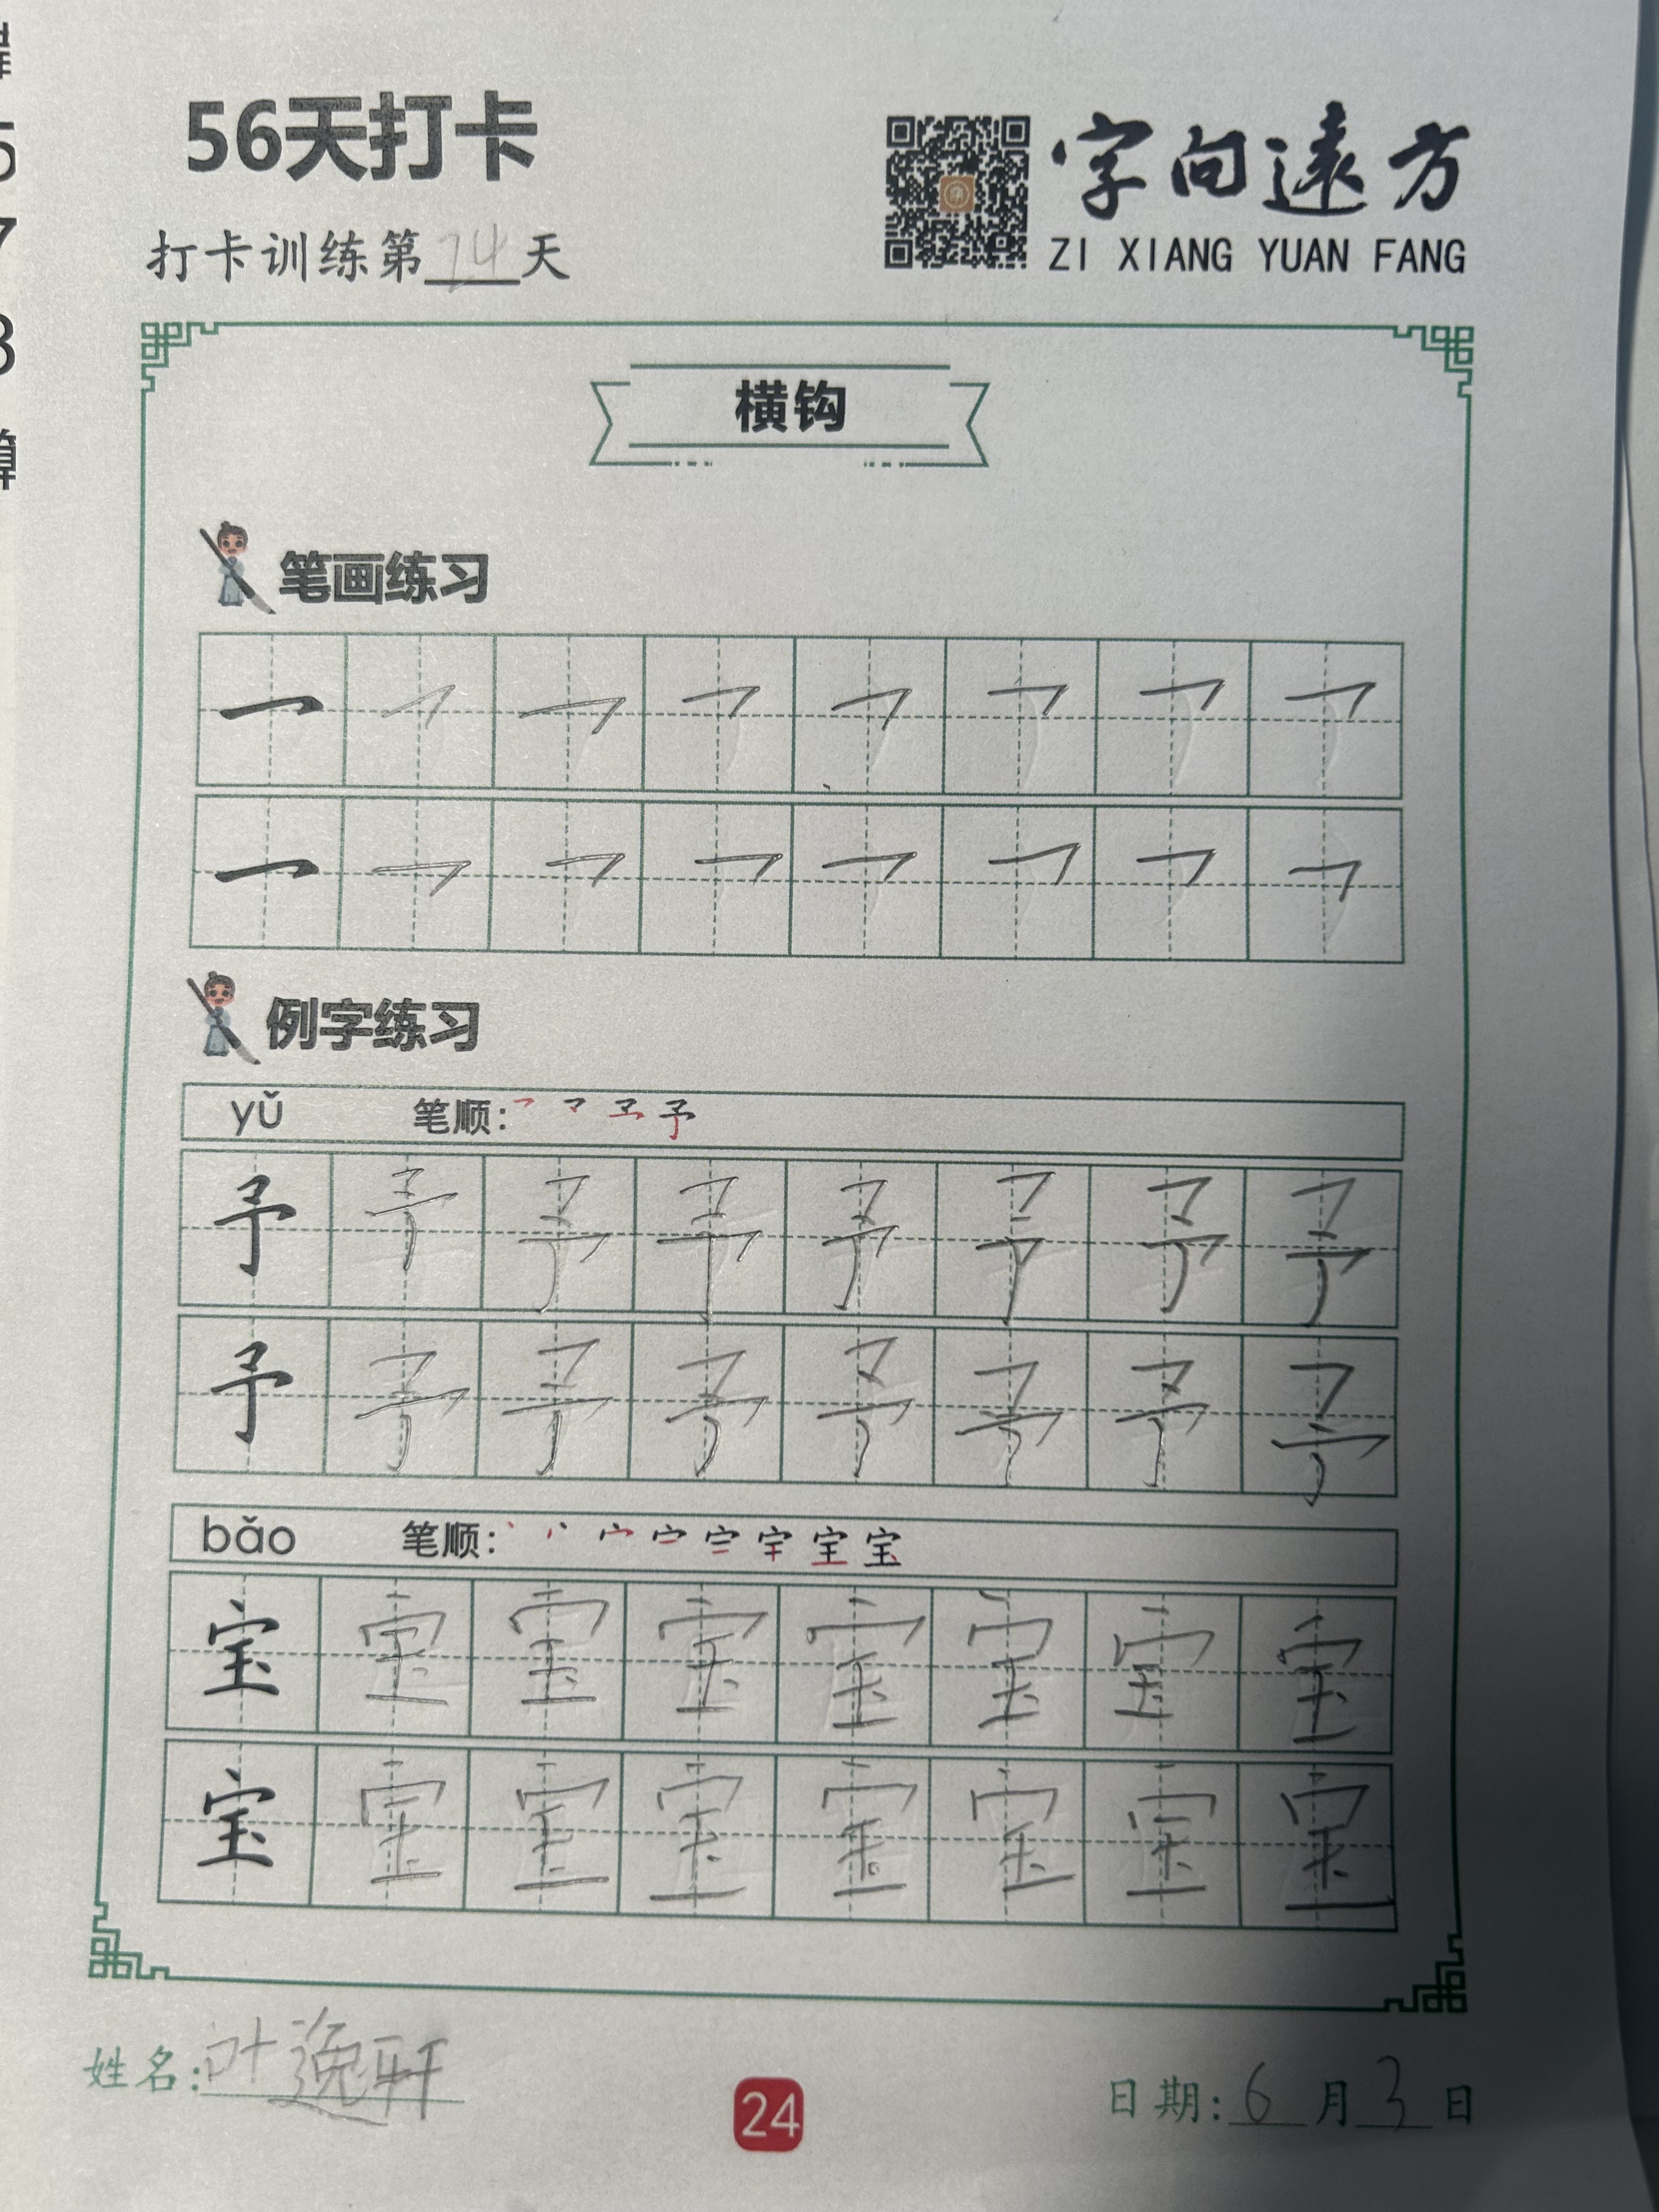 56天打卡
字向遠方
ZI XIANG YUAN FANG
打卡训练第24天
横钩
笔画练习
例字练习
yǔ 笔顺:
予 予 予 予 予 予 予 予
予 予 予 予 予 予 予 予
bǎo 笔顺:
宝 宝 宝 宝 宝 宝 宝 宝
宝 宝 宝 宝 宝 宝 宝 宝
姓名:叶逸轩
24
日期:6月3日